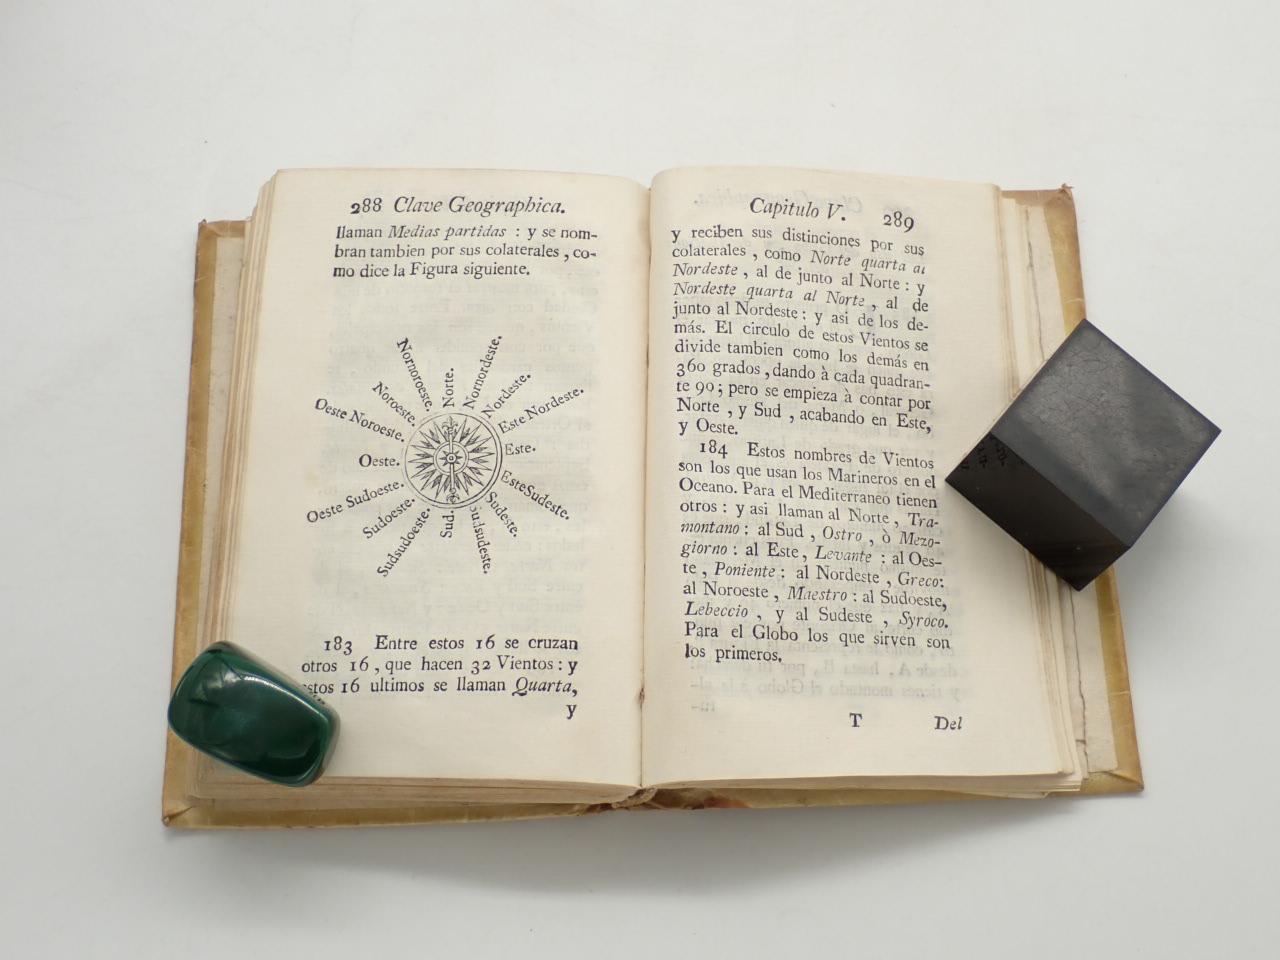 288 Clave Geographica.
llaman Medias partidas : y se nom-
bran tambien por sus colaterales , co-
mo dice la Figura siguiente.
Norte.
Nornordeste.
Nordeste.
Este Nordeste.
Este.
EsteSudeste.
Sudeste.
Sudsudeste.
Sud.
Sudsudoeste.
Sudoeste.
Oeste Sudoeste.
Oeste.
Oeste Noroeste.
Noroeste.
Nornoroeste.
183 Entre estos 16 se cruzan
otros 16 , que hacen 32 Vientos : y
estos 16 ultimos se llaman Quarta,
y
Capitulo V. 289
y reciben sus distinciones por sus
colaterales , como Norte quarta al
Nordeste , al de junto al Norte : y
Nordeste quarta al Norte , al de
junto al Nordeste : y asi de los de-
más. El circulo de estos Vientos se
divide tambien como los demás en
360 grados , dando à cada quadran-
te 90 ; pero se empieza à contar por
Norte , y Sud , acabando en Este,
y Oeste.
184 Estos nombres de Vientos
son los que usan los Marineros en el
Oceano. Para el Mediterraneo tienen
otros : y asi llaman al Norte , Tra-
montano : al Sud , Ostro , ò Mezo-
giorno : al Este, Levante : al Oes-
te , Poniente : al Nordeste , Greco:
al Noroeste , Maestro : al Sudoeste,
Lebeccio , y al Sudeste , Syroco.
Para el Globo los que sirven son
los primeros.
T Del